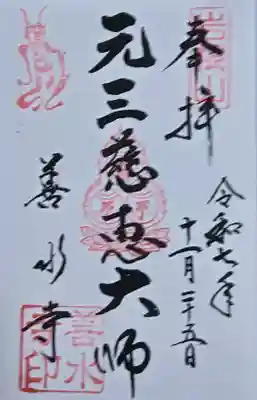 奉拝
令和七年
十一月二十五日
元三慈恵大師
善水寺
善水
寺印